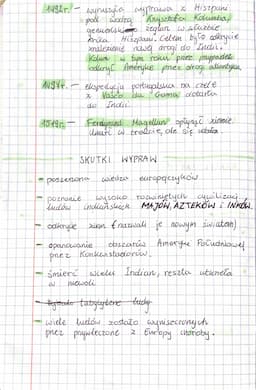 1492r. - wyrusza wyprawa z Hiszpani
pod wodzą Krzysztofa Kolumba,
genueńskiego żeglarza w służbie
króla Hiszpani. Celem było odkrycie
znalezienie nowej drogi do Indii.
Kolumb w tym roku przez przypadek
odkrył Amerykę przez drogi atlantyckie.
1497r. - ekspedycja portugalska na czele
z Vasco da Gama dotarła
do Indii.
1519r. - Ferdynand Magellan opłynął ziemię
umarł w trakcie, ale się udało.
SKUTKI WYPRAW
- poszerzona wiedza europejczyków
- poznanie wysoko rozwiniętych cywilizacji
ludów indiańskich MAJÓW, AZTEKÓW i INKÓW.
- odkrycie ziem (nazwali je nowym światem)
- opanowanie obszarów Ameryki Południowej
przez Konkwistadorów.
- śmierć wielu Indian, reszta utknęła
w niewoli
- tubylcze ludy
- wiele ludów zostało wyniszczonych
przez przywleczone z Europy choroby.